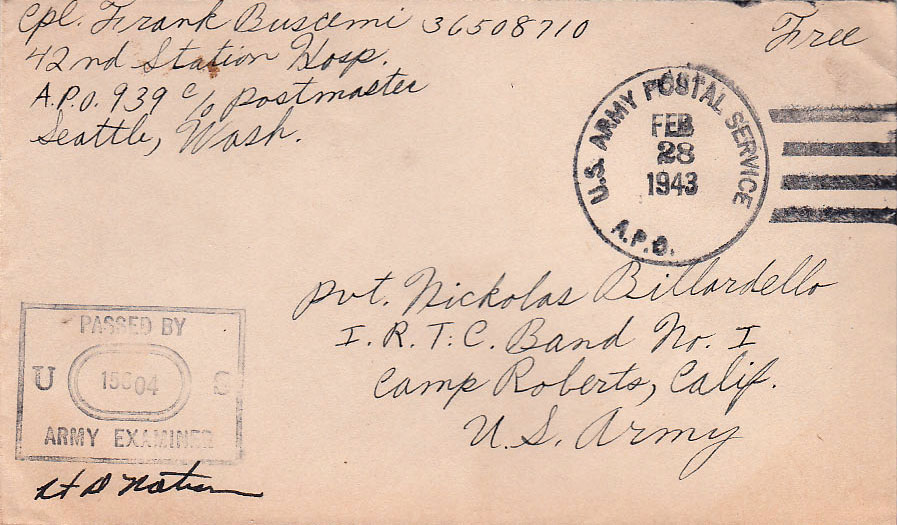 Cpl. Frank Buscemi 36508710
42nd Station Hosp.
A.P.O. 939 c/o Postmaster
Seattle, Wash.
Free
U.S. ARMY POSTAL SERVICE
FEB
28
1943
A.P.O.
Pvt. Nickolas Billardello
I.R.T.C. Band No. I
Camp Roberts, Calif.
U.S. Army
PASSED BY
U S
ARMY EXAMINER